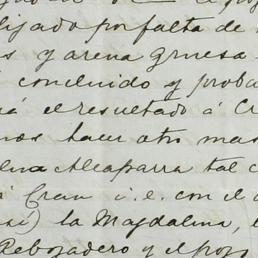 lijado por falta de
s y arena gruesa
concluido y proba
rá el resultado á Cr
mos hacer otro mas
Alcaparra tal c
Cran i.e. con el d
la Magdalena, e
Rebozadero y el pozo